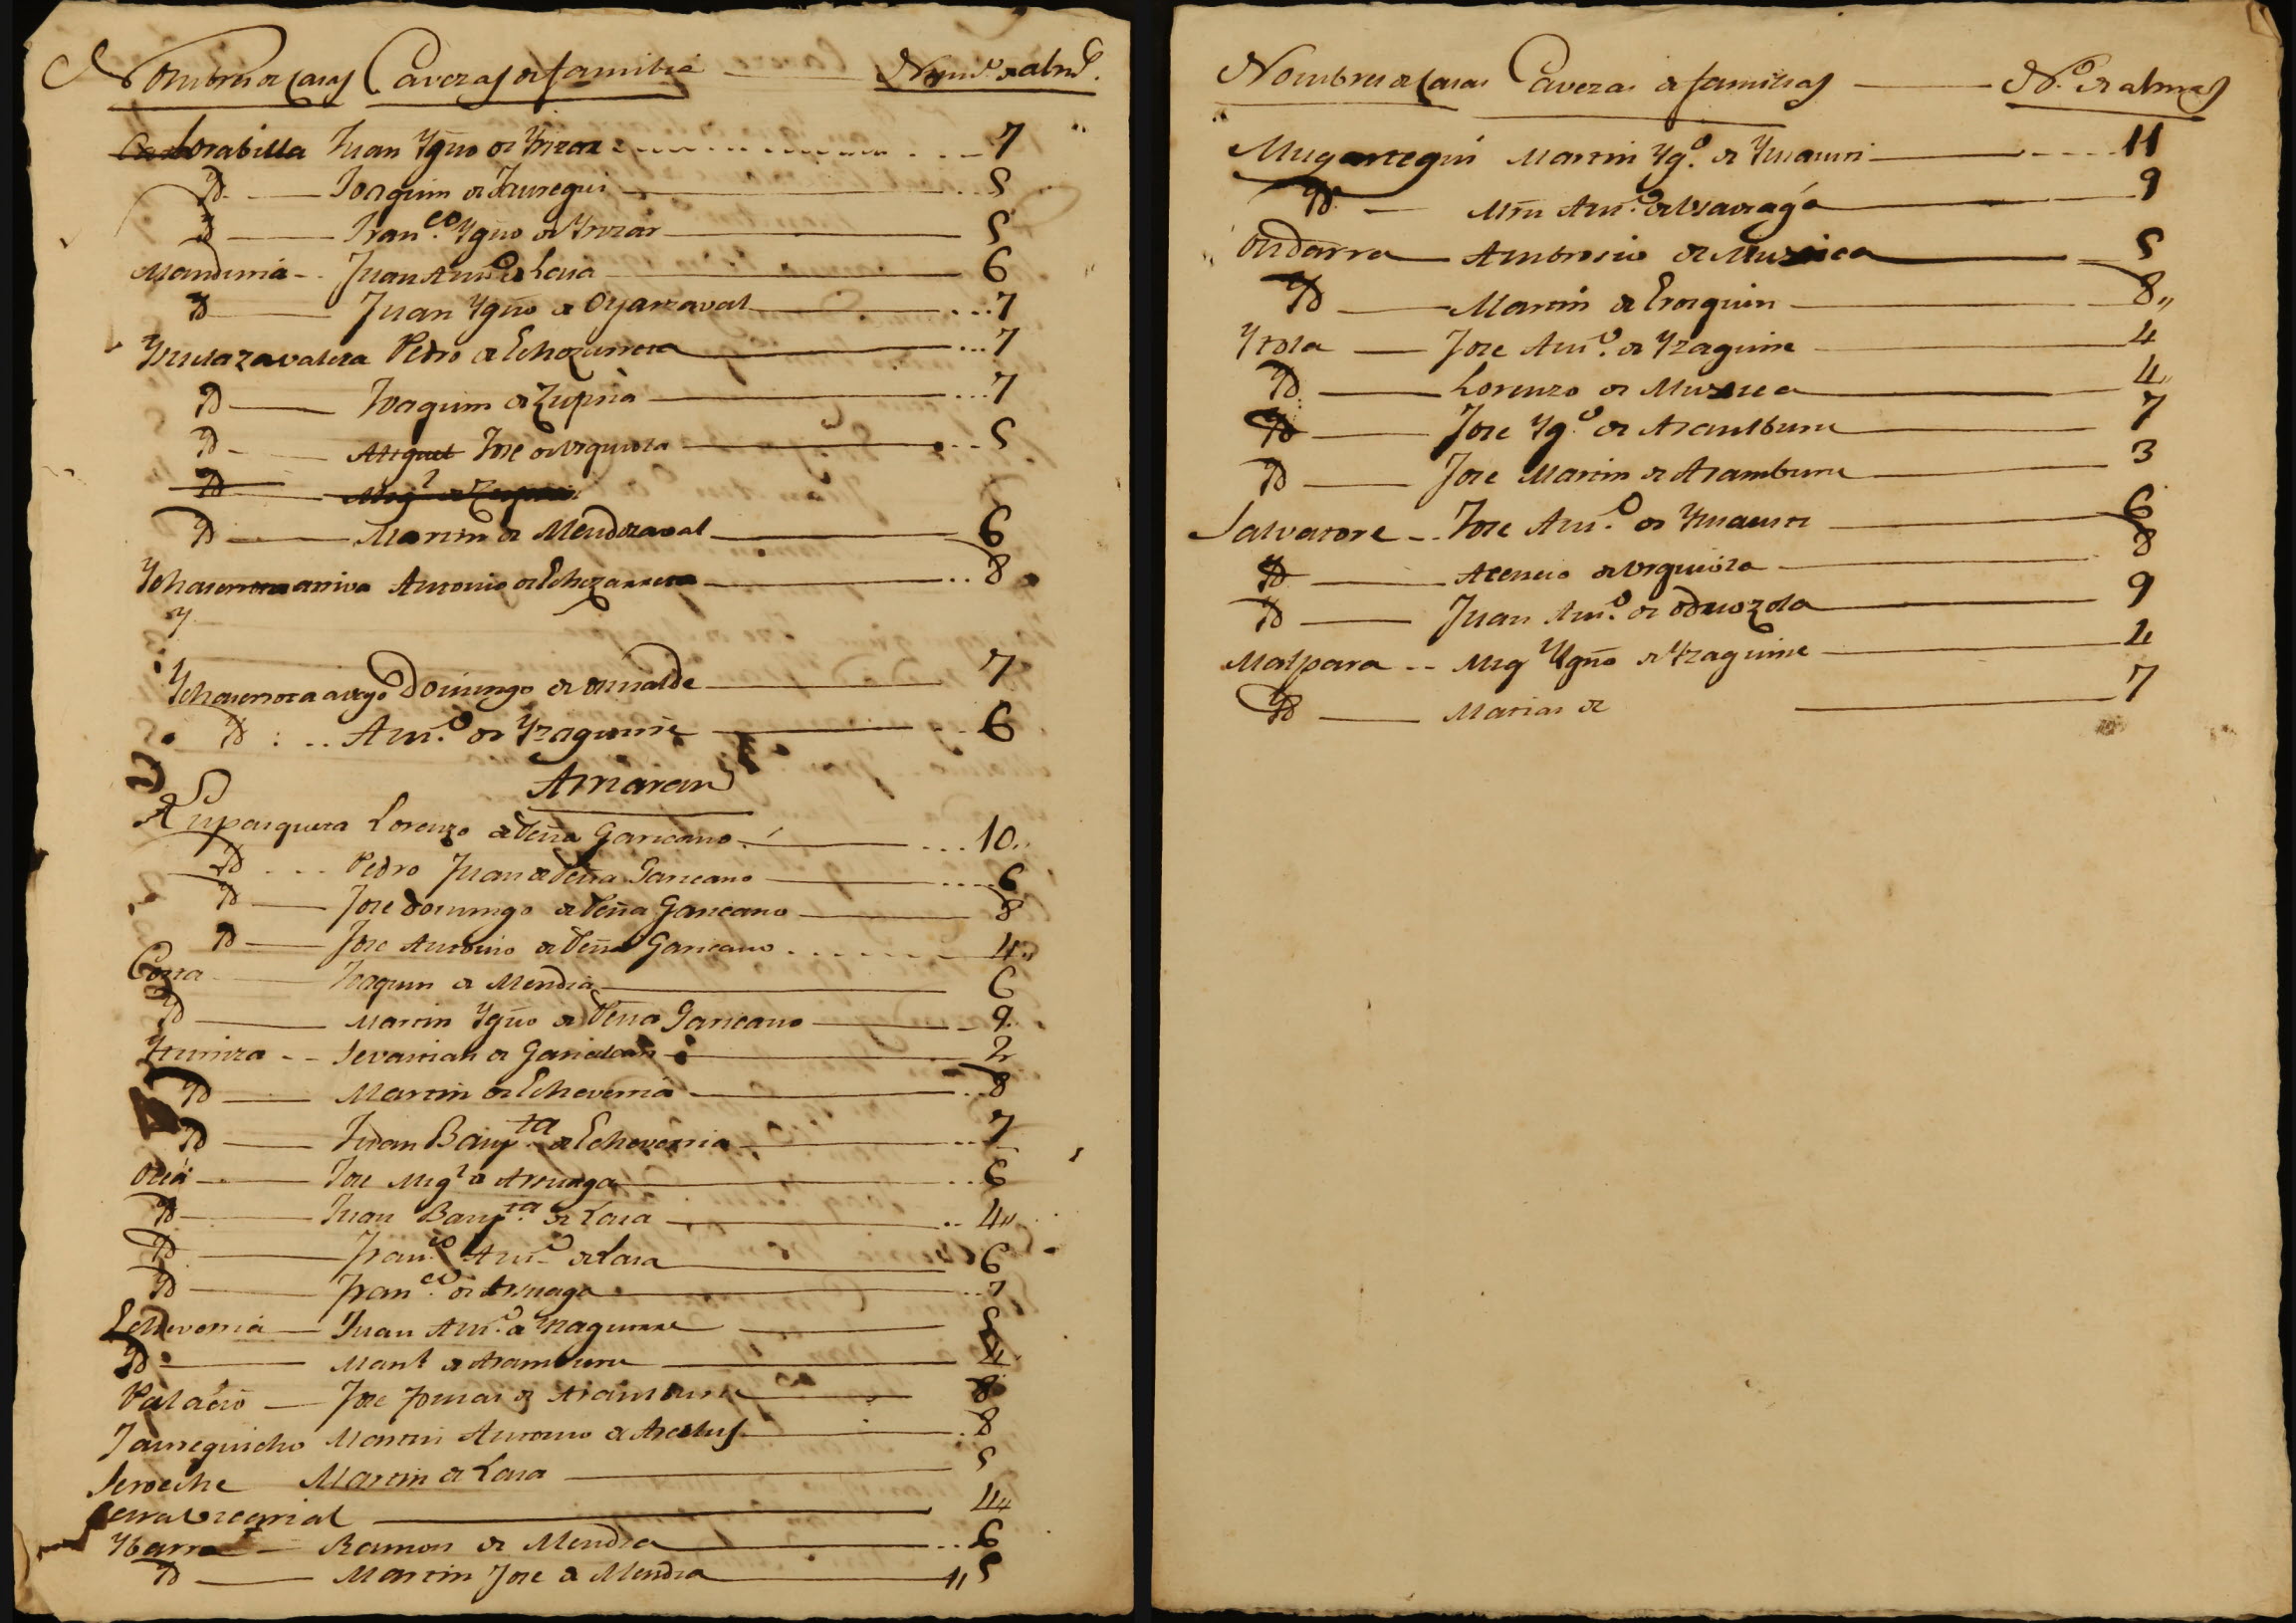 Nombres de Casas Cavezas de familia Num.o de alms.
Lorabilla Juan Ygno de Yrizar 7
Yd Joaquin de Jauregui 5
Yd Fran.co Ygno de Yrizar 5
Mandiuria Juan Ant.o de Lasa 6
Yd Juan Ygno de Oyarzaval 7
Pedro de Echezarreta 7
Yd Joaquin de Zupria 7
Yd Miguel Jose de Urquiola 5
Yd Mig.l de
Yd Martin de Mendizaval 6
arriva Antonio de Echezarreta 8
Y
Domingo de 7
Yd Ant.o de Yzaguirre 6
Arriaran
Lorenzo de Teña Garicano 10
Yd Pedro Juan de Teña Garicano 6
Yd Jose Domingo de Teña Garicano 8
Yd Jose Antonio de Teña Garicano 4
Corta Joaquin de Mendia 6
Yd Martin Ygno de Teña Garicano 9
Yturriza Sevastian de 2
Yd Martin de Echeverria 8
Yd Juan Baup.ta de Echeverria 7
Oria Jose Mig.l de Arruaga 6
Yd Juan Baup.ta de Lasa 4
Yd Fran.co Ant.o de Lasa 6
Yd Fran.co de Arruaga 7
Echeverria Juan Ant.o de Yzaguirre 5
Yd Man.l de Aramburu 4
Palacio Jose Tomas de Aramburu 8
Jaureguicho Martin Antonio de 8
Seroeche Martin de Lasa 5
4
Ybarra Ramon de Mendia 6
Yd Martin Jose de Mendia 5
Nombres de Casas Cavezas de familias N.o de almas
Mugartegui Martin Yg.o de 11
Yd Mrn Ant.o de 9
Ondarra Ambrosio de Muxica 5
Yd Martin de Eroiquin 8
Yrola Jose Ant.o de Yzaguirre 4
Yd Lorenzo de Muxica 4
Yd Jose Yg.o de Aramburu 7
Yd Jose Martin de Aramburu 3
Salvatore Jose Ant.o de 6
Yd Atencio de Urquiola 8
Yd Juan Ant.o de Odriozola 9
Malpara Mig Ygno de Yzaguirre 4
Yd Matias de 7